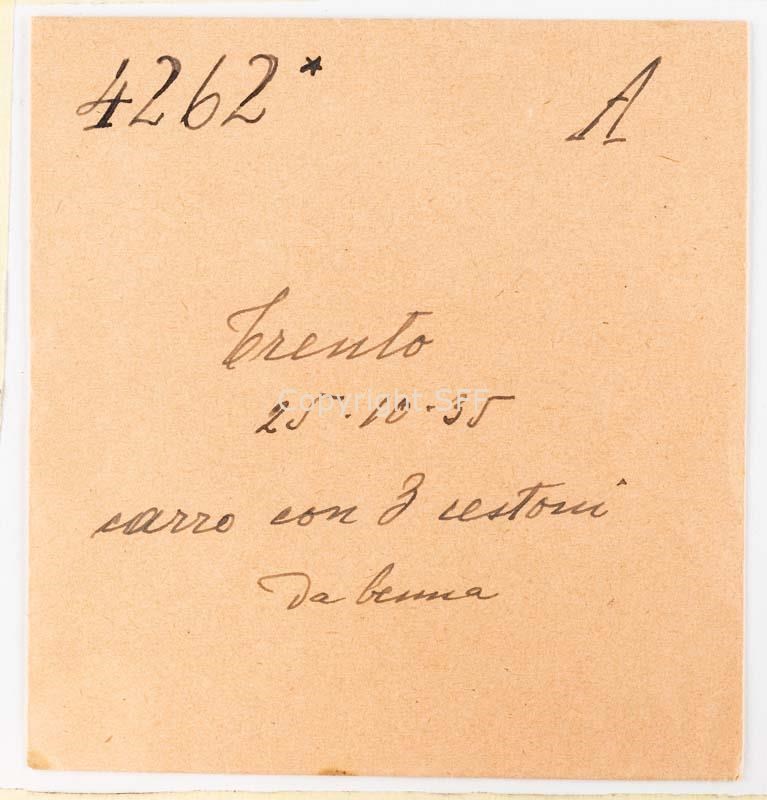 4262* A
Trento
Copyright SFF
25-10-35
carro con 3 cestoni
da benna